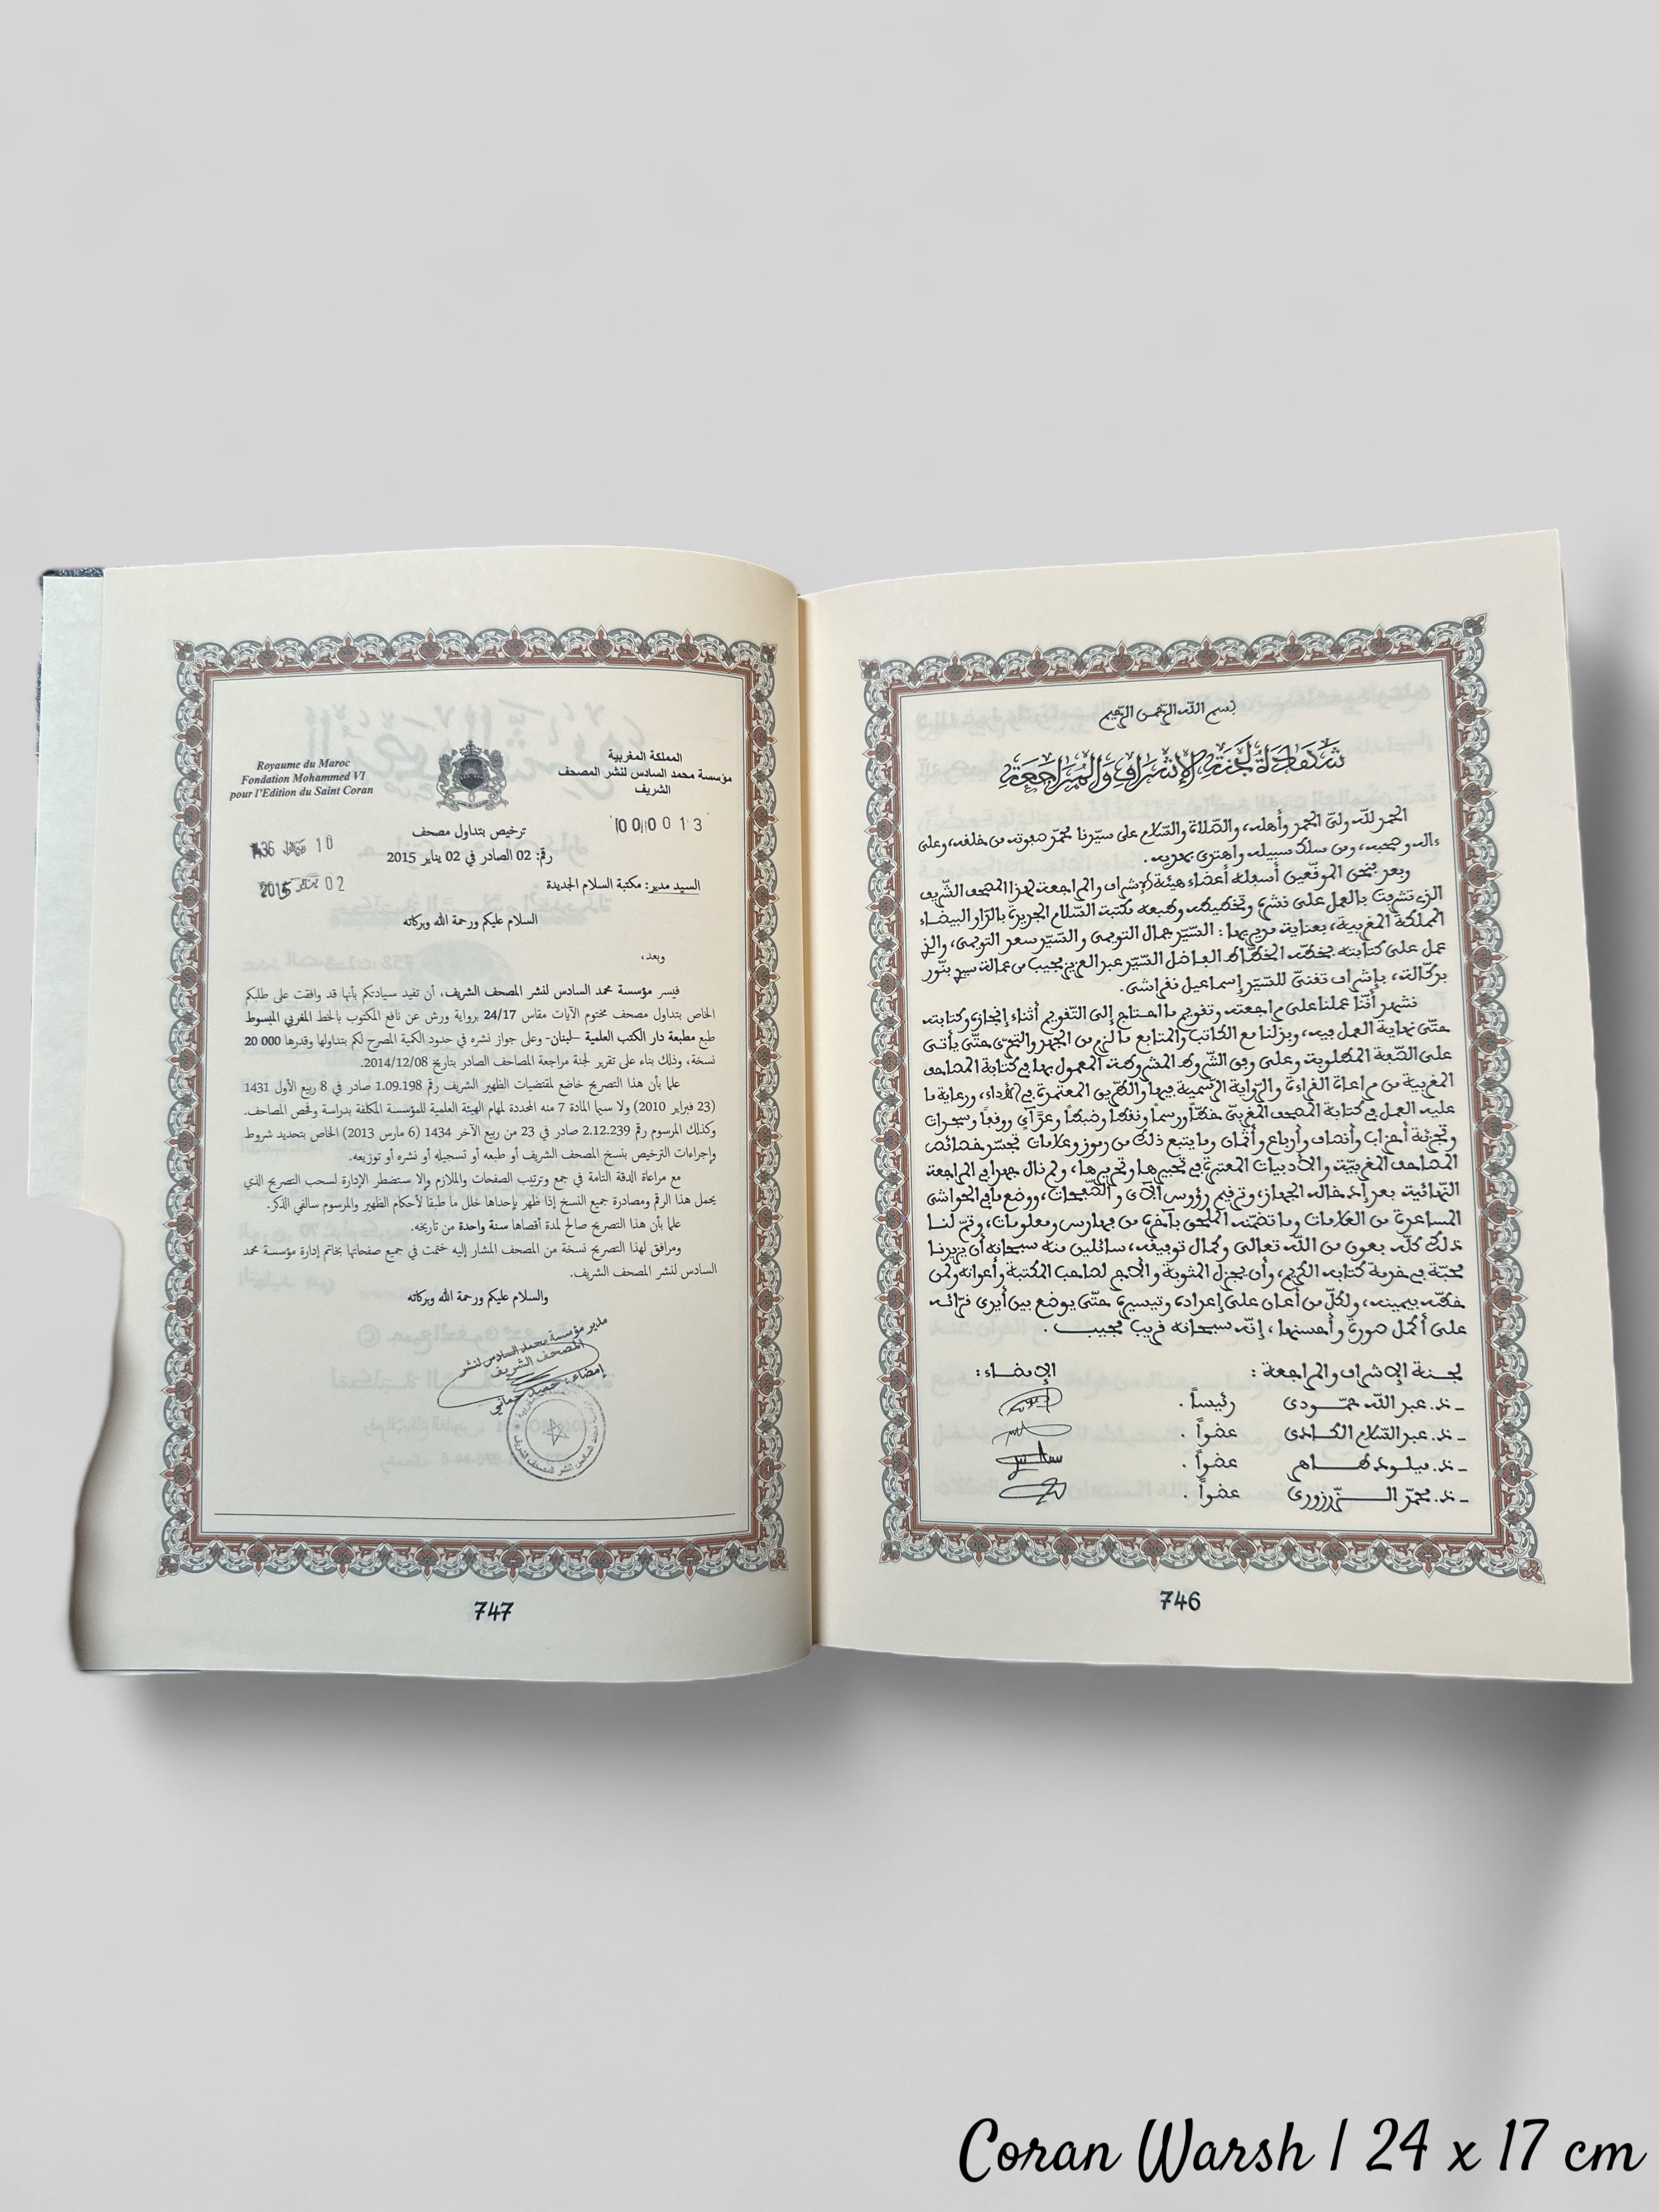 بسم الله الرحمن الرحيم
شهادة لجنة الإشراف والمراجعة
الحمد لله ولي الحمد وأهله، والصلاة والسلام على سيدنا محمد صفوته من خلقه، وعلى
ءاله وصحبه، ومن سلك سبيله واهتدى بهديه.
وبعد فنحن الموقعين أسفله أعضاء هيئة الإشراف والمراجعة لهذا المصحف الشريف
الذي تشرفت بالعمل على نشره وتخطيطه وطبعه مكتبة السلام الجديدة بالدار البيضاء
المملكة المغربية، بعناية مديريها: السيد جمال التويمي والسيد سعد التويمي، والذي
عمل على كتابته بخطه الخطاط الفاضل السيد عبد العزيز مجيب من عمالة سيدي بنور
بدكالة، بإشراف تقني للسيد إسماعيل نفراشي.
نشهد أننا عملنا على مراجعته وتقويم ما احتاج إلى التقويم أثناء إنجازه وكتابته
حتى نهاية العمل فيه، وبذلنا مع الكاتب والمتابع ما لزم من الجهد والتحري حتى يأتي
على الصفة المطلوبة وعلى وفق الشروط المشروطة المعمول بها في كتابة المصاحف
المغربية من مراعاة القراءة والرواية الرسمية فيها والطريق المعتمدة في الأداء، ورعاية ما
عليه العمل في كتابة المصحف المغربي خطا ورسما ونقطا وضبطا وعد آي ووقفا وسجدات
وتجزئة أحزاب وأنصاف وأرباع وأثمان وما يتبع ذلك من رموز وعلامات تجسد خصائص
المصاحف المغربية والأدبيات المعتبرة في تحبيرها وتحريرها، ولم نال جهدا في المراجعة
النهائية بعد إدخاله الجهاز، وترقيم رؤوس الآي والصفحات، ووضع ما في الحواشي
المساعدة من العلامات وما تضمنه الملحق بآخره من فهارس ومعلومات، وتم لنا
ذلك كله بعون من الله تعالى وكمال توفيقه، سائلين منه سبحانه أن يزيدنا
محبة في خدمة كتابه الكريم، وأن يجزل المثوبة والأجر لصاحب المكتبة وأعوانه ولمن
خطه بيمينه، ولكل من أعان على إعداده وتيسيره حتى يوضع بين أيدي قرائه
على أكمل صورة وأحسنها، إنه سبحانه قريب مجيب.
لجنة الإشراف والمراجعة: الإمضاء:
- ذ. عبد الله حمودي رئيساً.
- ذ. عبد السلام الكادي عضواً.
- ذ. ميلود طاهر عضواً.
- ذ. محمد الزرزوري عضواً.
746
المملكة المغربية
مؤسسة محمد السادس لنشر المصحف
الشريف
Royaume du Maroc
Fondation Mohammed VI
pour l'Edition du Saint Coran
000013
ترخيص بتداول مصحف
رقم: 02 الصادر في 02 يناير 2015
10 1436
02 2015
السيد مدير: مكتبة السلام الجديدة
السلام عليكم ورحمة الله وبركاته
وبعد،
فيسر مؤسسة محمد السادس لنشر المصحف الشريف، أن تفيد سيادتكم بأنها قد وافقت على طلبكم
الخاص بتداول مصحف مختوم الآيات مقاس 24/17 برواية ورش عن نافع المكتوب بالخط المغربي المبسوط
طبع مطبعة دار الكتب العلمية -لبنان- وعلى جواز نشره في حدود الكمية المصرح لكم بتداولها وقدرها 20 000
نسخة، وذلك بناء على تقرير لجنة مراجعة المصاحف الصادر بتاريخ 2014/12/08.
علما بأن هذا التصريح خاضع لمقتضيات الظهير الشريف رقم 1.09.198 صادر في 8 ربيع الأول 1431
(23 فبراير 2010) ولا سيما المادة 7 منه المحددة لمهام الهيئة العلمية للمؤسسة المكلفة بدراسة وفحص المصاحف.
وكذلك المرسوم رقم 2.12.239 صادر في 23 من ربيع الآخر 1434 (6 مارس 2013) الخاص بتحديد شروط
وإجراءات الترخيص بنسخ المصحف الشريف أو طبعه أو تسجيله أو نشره أو توزيعه.
مع مراعاة الدقة التامة في جمع وترتيب الصفحات والملازم وإلا ستضطر الإدارة لسحب التصريح الذي
يحمل هذا الرقم ومصادرة جميع النسخ إذا ظهر بإحداها خلل ما طبقا لأحكام الظهير والمرسوم سالفي الذكر.
علما بأن هذا التصريح صالح لمدة أقصاها سنة واحدة من تاريخه.
ومرافق لهذا التصريح نسخة من المصحف المشار إليه ختمت في جميع صفحاتها بخاتم إدارة مؤسسة محمد
السادس لنشر المصحف الشريف.
والسلام عليكم ورحمة الله وبركاته
مدير مؤسسة محمد السادس لنشر
المصحف الشريف
إمضاء: حميد حماني
747
Coran Warsh | 24 x 17 cm